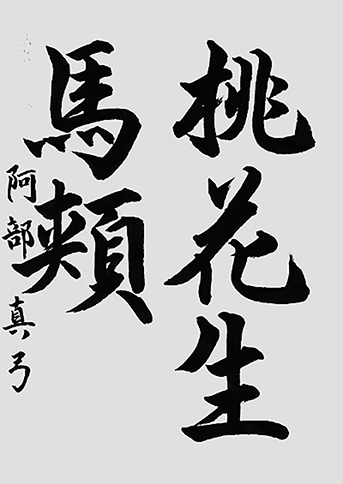 桃花生
馬頬
阿部真弓